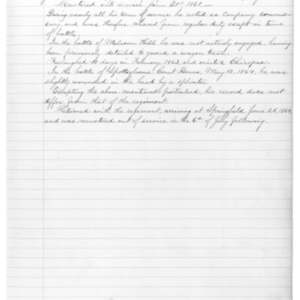 Mustered into service June 21st 1861.
During nearly all his term of service he acted as Company commander,
and was therefore absent from regular duty except in times
of battle.
In the battle of Malvern Hill he was not actively engaged, having
been previously detailed to guard a wagon train.
Furloughed 10 days in February 1863 and visited Chicopee.
In the battle of Spottsylvania Court House, May 12, 1864, he was
slightly wounded in the hand by a splinter.
Excepting the above mentioned particulars, his record does not
differ from that of the regiment.
Returned with the regiment, arriving at Springfield June 25, 1864,
and was mustered out of service on the 6th of July following.